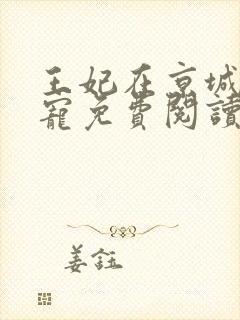 王妃在京城
寵免費閱讀
姜鈺